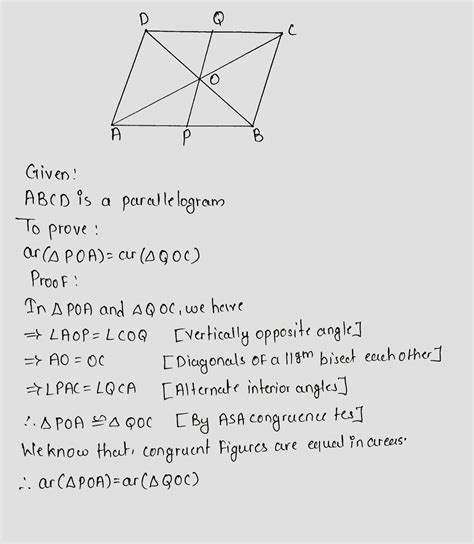 D Q C
O
A P B
Given:
ABCD is a parallelogram
To prove:
ar(△POA)=ar(△QOC)
Proof:
In △POA and △QOC, we have
⇒ ∠AOP=∠COQ [Vertically opposite angle]
⇒ AO=OC [Diagonals of a ||gm bisect each other]
⇒ ∠PAC=∠QCA [Alternate interior angles]
∴ △POA ≅ △QOC [By ASA congruence tes]
We know that, congruent figures are equal in areas.
∴ ar(△POA)=ar(△QOC)